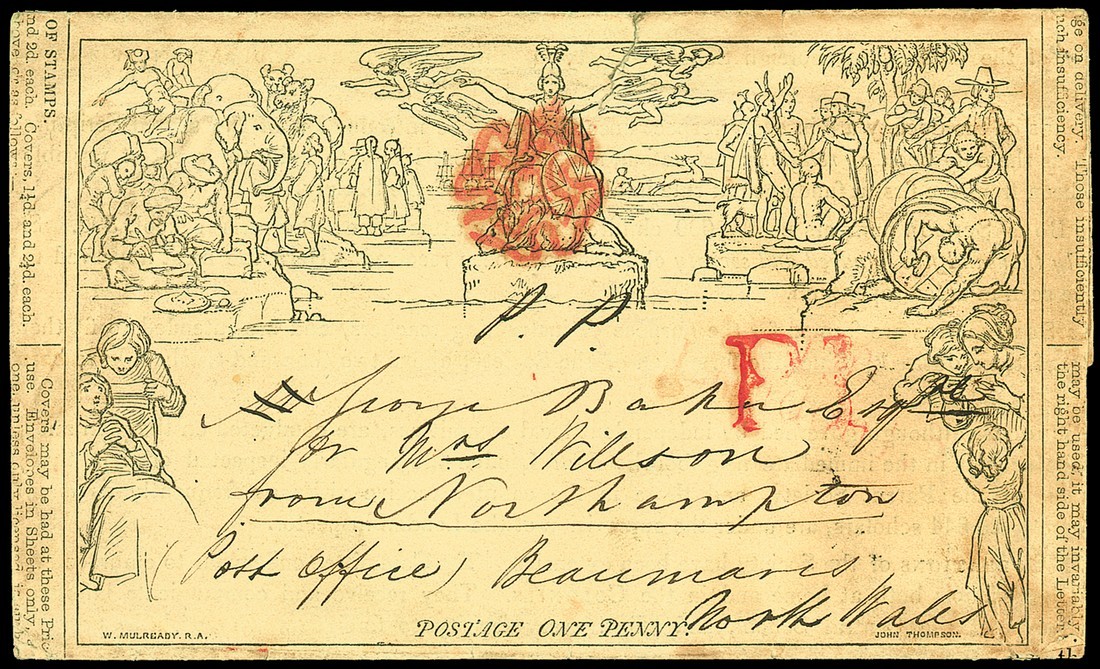 OF STAMPS.
nd 2d. each. Covers, 1¼d and 2¼d. each.
Covers may be had at these Pric
use. Envelopes in Sheets only
one, unless
P. P.
George Baker Esqre
for Mrs Willson
from Northampton
(Post Office) Beaumaris
North Wales
POSTAGE ONE PENNY.
W. MULREADY. R.A.
JOHN THOMPSON.
ge on delivery. Those insufficiently
uch insufficiency.
may be used, it may invariably
the right hand side of the Letter.
th